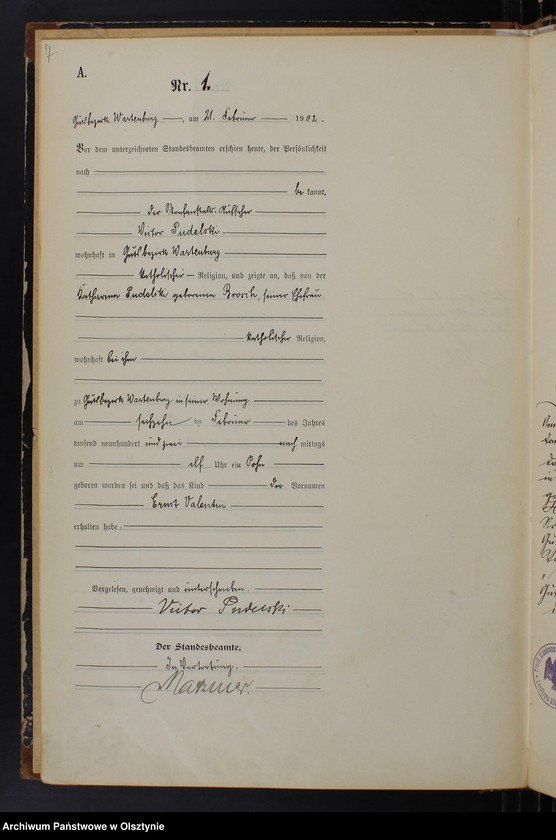 7
A.
Nr. 1.
Gutsbezirk Wartenburg, am 21. Februar 1902.
Vor dem unterzeichneten Standesbeamten erschien heute, der Persönlichkeit
nach
be kannt,
der Strafanstalts-Aufseher
Victor Pudelski
wohnhaft in Gutsbezirk Wartenburg
katholischer Religion, und zeigte an, daß von der
Katharina Pudelski geborenen Brosch, seiner Ehefrau
katholischer Religion,
wohnhaft bei ihm
zu Gutsbezirk Wartenburg in seiner Wohnung
am sechzehnten Februar des Jahres
tausend neunhundert und zwei nach mittags
um elf Uhr ein Sohn
geboren worden sei und daß das Kind der Vornamen
Ernst Valentin
erhalten habe.
Vorgelesen, genehmigt und unterschrieben.
Victor Pudelski
Der Standesbeamte.
In Vertretung.
Archiwum Państwowe w Olsztynie